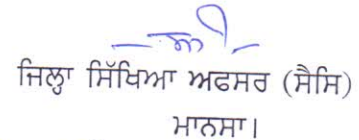 ਜਿਲ੍ਹਾ ਸਿੱਖਿਆ ਅਫਸਰ (ਸੈਸਿ)
ਮਾਨਸਾ।